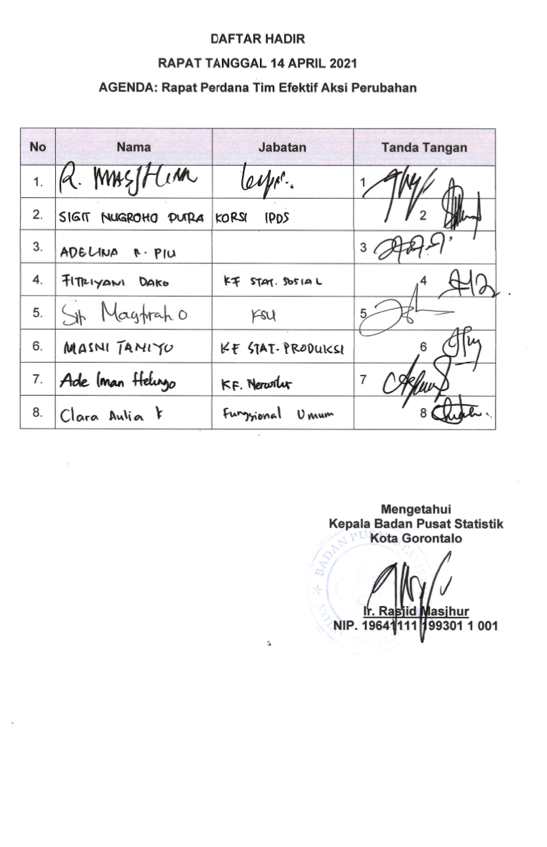 DAFTAR HADIR
RAPAT TANGGAL 14 APRIL 2021
AGENDA: Rapat Perdana Tim Efektif Aksi Perubahan
No Nama Jabatan Tanda Tangan
1. R. MASJHUR 1
2. SIGIT NUGROHO PUTRA KORSI IPDS 2
3. ADELINA R. PIU 3
4. FITRIYANI DAKO KF STAT. SOSIAL 4
5. KSU 5
6. MASNI TANIYO KF STAT. PRODUKSI 6
7. Ade Iman KF. 7
8. Clara Aulia Fungsional Umum 8
Mengetahui
Kepala Badan Pusat Statistik
Kota Gorontalo
BADAN
Ir. Rasjid Masjhur
NIP. 19641111 199301 1 001